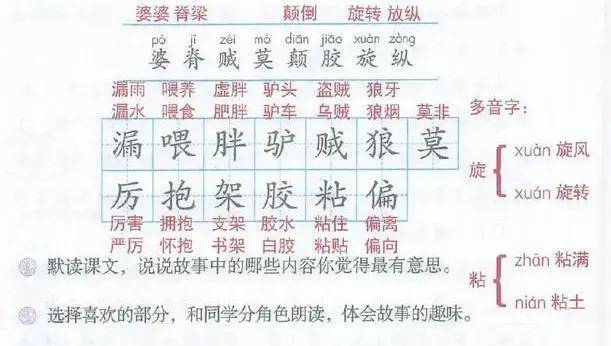 婆婆 脊梁 颠倒 旋转 放纵
pó jǐ zéi mò diān jiāo xuán zòng
婆 脊 贼 莫 颠 胶 旋 纵
漏雨 喂养 虚胖 驴头 盗贼 狼牙
漏水 喂食 肥胖 驴车 乌贼 狼烟 莫非
漏 喂 胖 驴 贼 狼 莫
厉 抱 架 胶 粘 偏
厉害 拥抱 支架 胶水 粘住 偏离
严厉 怀抱 书架 白胶 粘贴 偏向
默读课文，说说故事中的哪些内容你觉得最有意思。
选择喜欢的部分，和同学分角色朗读，体会故事的趣味。
多音字：
旋
xuàn 旋风
xuán 旋转
粘
zhān 粘满
nián 粘土